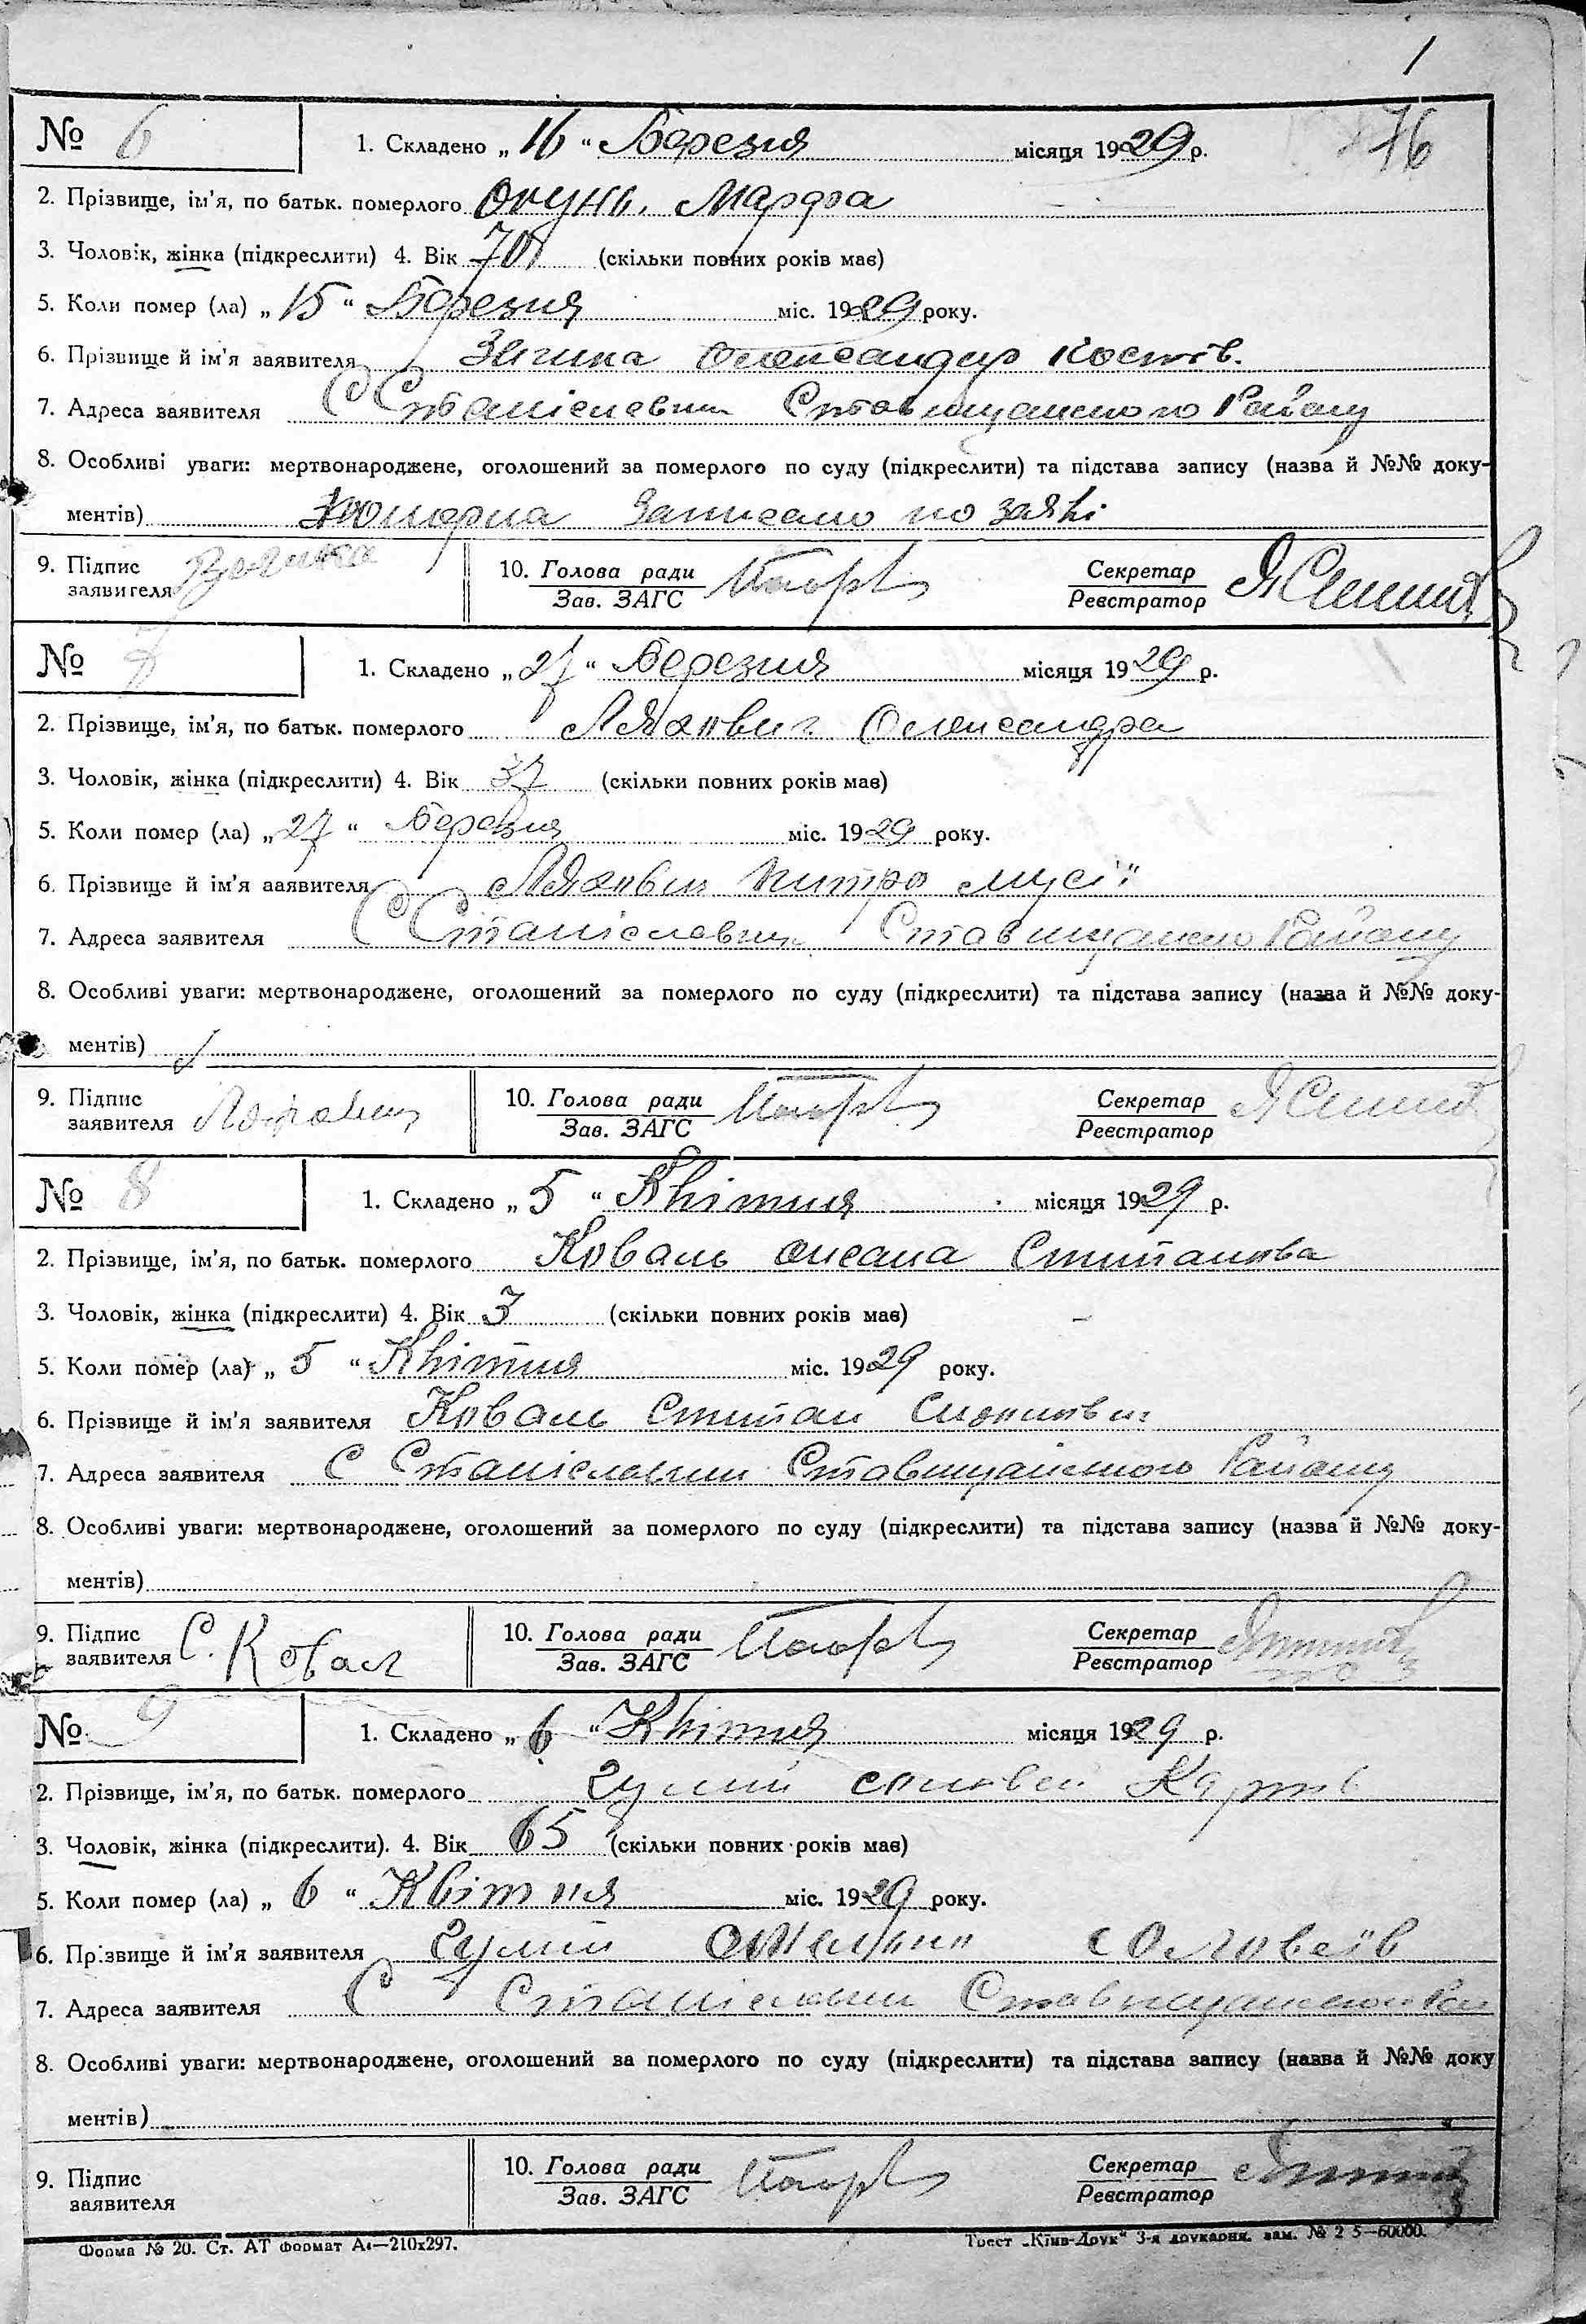 1
№ 6 1. Складено „ 16 “ Березня місяця 1929 р. 76
2. Прізвище, ім'я, по батьк. померлого Окунь Марфа
3. Чоловік, жінка (підкреслити) 4. Вік 70 (скільки повних років має)
5. Коли помер (ла) „ 15 “ Березня міс. 1929 року.
6. Прізвище й ім'я заявителя Олександир Костів.
7. Адреса заявителя С Станіславчик Ставищанського Району
8. Особливі уваги: мертвонароджене, оголошений за померлого по суду (підкреслити) та підстава запису (назва й №№ доку-
ментів) Записано по заяві
9. Підпис заявителя 10. Голова ради Секретар
Зав. ЗАГС Реєстратор
№ 7 1. Складено „ 27 “ Березня місяця 1929 р.
2. Прізвище, ім'я, по батьк. померлого Олександра
3. Чоловік, жінка (підкреслити) 4. Вік 37 (скільки повних років має)
5. Коли помер (ла) „ 27 “ Березня міс. 1929 року.
6. Прізвище й ім'я заявителя Митро Мусі
7. Адреса заявителя С Станіславчик Ставищанського Району
8. Особливі уваги: мертвонароджене, оголошений за померлого по суду (підкреслити) та підстава запису (назва й №№ доку-
ментів)
9. Підпис заявителя 10. Голова ради Секретар
Зав. ЗАГС Реєстратор
№ 8 1. Складено „ 5 “ Квітня місяця 1929 р.
2. Прізвище, ім'я, по батьк. померлого Коваль Оксана Степанова
3. Чоловік, жінка (підкреслити) 4. Вік 3 (скільки повних років має)
5. Коли помер (ла) „ 5 “ Квітня міс. 1929 року.
6. Прізвище й ім'я заявителя Коваль Степан
7. Адреса заявителя С Станіславчик Ставищанського Району
8. Особливі уваги: мертвонароджене, оголошений за померлого по суду (підкреслити) та підстава запису (назва й №№ доку-
ментів)
9. Підпис заявителя С. Ковал 10. Голова ради Секретар
Зав. ЗАГС Реєстратор
№ 9 1. Складено „ 6 “ Квітня місяця 1929 р.
2. Прізвище, ім'я, по батьк. померлого Гулий Карпів
3. Чоловік, жінка (підкреслити). 4. Вік 65 (скільки повних років має)
5. Коли помер (ла) „ 6 “ Квітня міс. 1929 року.
6. Прізвище й ім'я заявителя Гулий Соловеїв
7. Адреса заявителя С Станіславчик Ставищанського Рай
8. Особливі уваги: мертвонароджене, оголошений за померлого по суду (підкреслити) та підстава запису (назва й №№ доку
ментів)
9. Підпис заявителя 10. Голова ради Секретар
Зав. ЗАГС Реєстратор
Форма № 20. Ст. АТ формат А4—210x297. Трест „Київ-Друк“ 3-я друкарня. зам. № 2 5—60000.